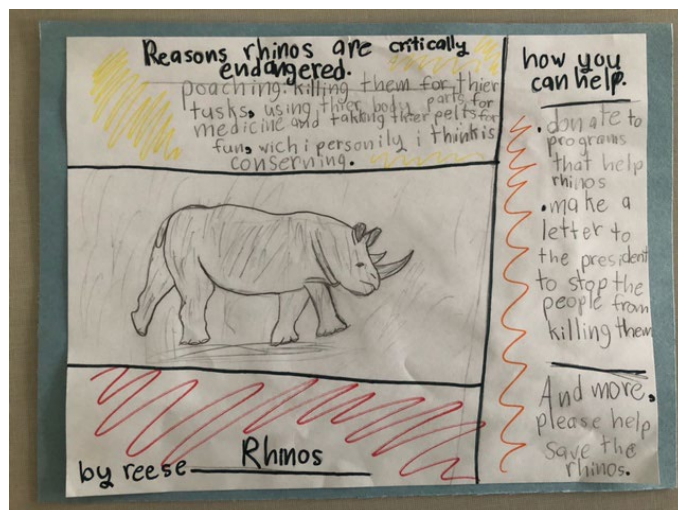 Reasons rhinos are critically
endangered.
poaching: killing them for thier
tusks, using thier body parts for
medicine and takking thier pelts for
fun, wich i personily i think is
conserving.
how you
can help.
• donate to
programs
that help
rhinos
• make a
letter to
the president
to stop the
people from
killing them
And more,
please help
save the
rhinos.
Rhinos
by reese